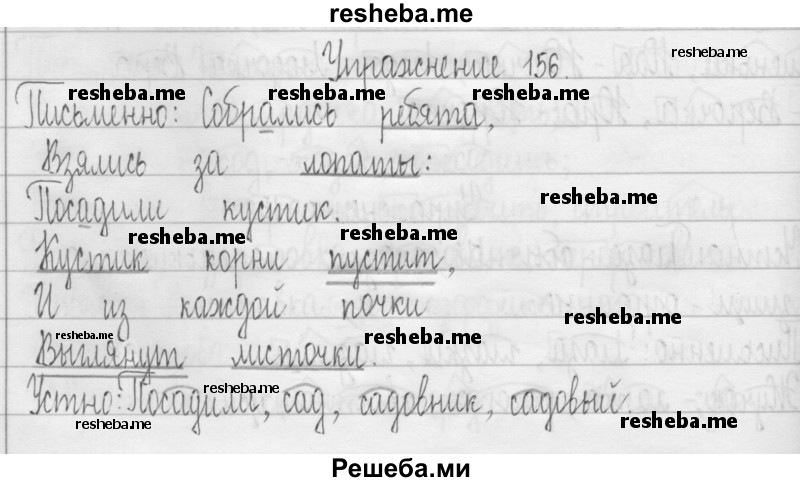 resheba.me
Упражнение 156.
resheba.me
resheba.me resheba.me resheba.me
Письменно: Собрались ребята,
Взялись за лопаты:
Посадили кустик.
resheba.me
resheba.me resheba.me
Кустик корни пустит,
И из каждой почки
resheba.me
resheba.me resheba.me
Выглянут листочки.
Устно: Посадили, сад, садовник, садовый.
resheba.me
resheba.me resheba.me
Решеба.ми